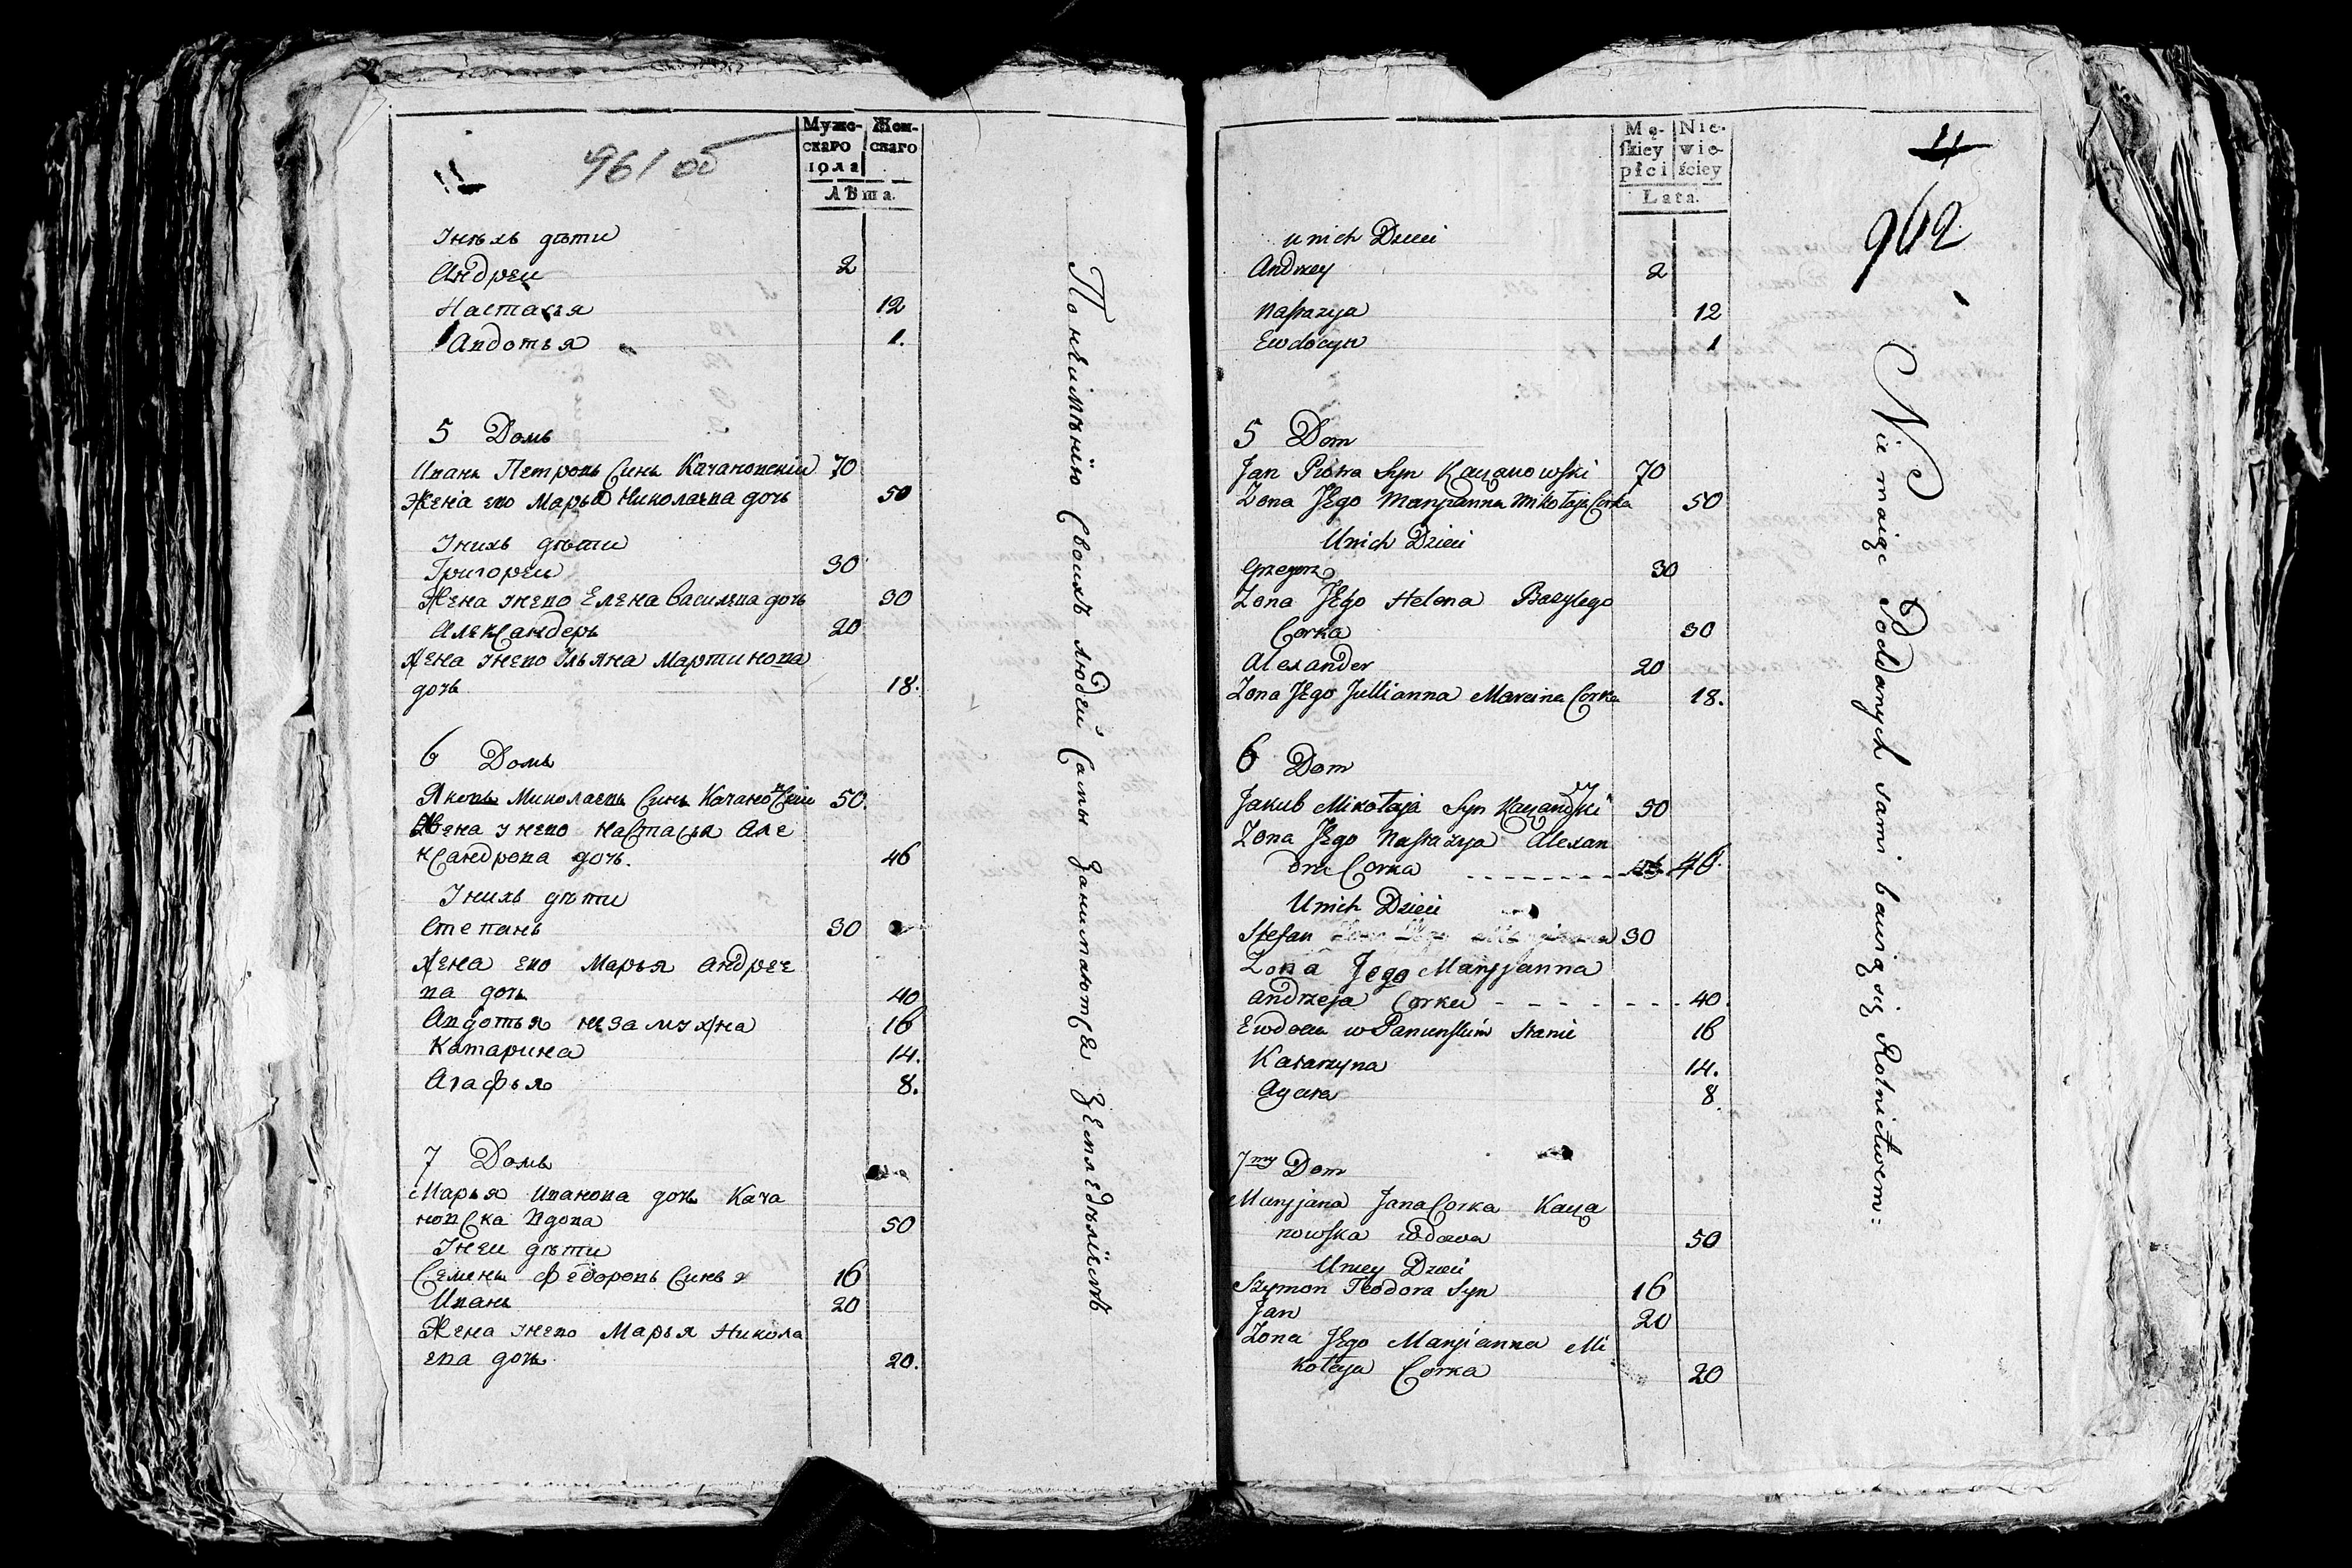 11
961 об
Мужс-
скаго
пола
Жен-
скаго
Лѣта.
Унѣхъ дѣти
Андреи 2
Настасья 12
Авдотья 1.
5 Домъ
Иванъ Петровъ Синъ Качановскіи 70
Жена его Марья Николаева дочь 50
Унихъ дѣти
Григореи 30
Жена унего Елена Василева дочь 30
Александеръ 20
Жена унего Ульяна Мартинова
дочь 18.
6 Домъ
Яковъ Миколаевъ Синъ Качановскіи 50
Жена унего Настасья Але
ксандрова дочь. 46
Унихъ дѣти
Степанъ 30
Жена его Марья Андрее
ва дочь 40
Авдотья незамужна 16
Катарина 14.
Агафья 8.
7 Домъ
Марья Иванова дочь Кача
новска вдова 50
Унеи дѣти
Семенъ Федоровъ Синъ 16
Иванъ 20
Жена унего Марья Никола
ева дочь 20.
По неимѣнію Своихъ людей Сами Занимаютса Земледѣліемъ
Mę-
skiey
płci
Nie-
wie-
ściey
Lata.
11
962
u nich Dzieci
Andrzey 2
Nastazya 12
Ewdocya 1
5 Dom
Jan Piotra Syn Kaczanowski 70
Zona Jego Maryjanna Mikołaja Corka 50
U nich Dzieci
Grzegorz 30
Zona Jego Helena Bazylego
Corka 30
Alexander 20
Zona Jego Jullianna Marcina Corka 18.
6 Dom
Jakub Mikołaja Syn Kaczanowski 50
Zona Jego Nastazya Alexan
dra Corka 46.
U nich Dzieci
Stefan 30
Zona Jego Maryjanna
Andrzeja Corka 40.
Ewdocia w Panienskim stanie 16
Katarzyna 14.
Agata 8
7my Dom
Maryjana Jana Corka Kacza
nowska wdowa 50
U niey Dzieci
Szymon Teodora Syn 16
Jan 20
Zona Jego Maryianna Mi
kołaja Corka 20
Nie maiąc Poddanych sami bawią się Rolnictwem: